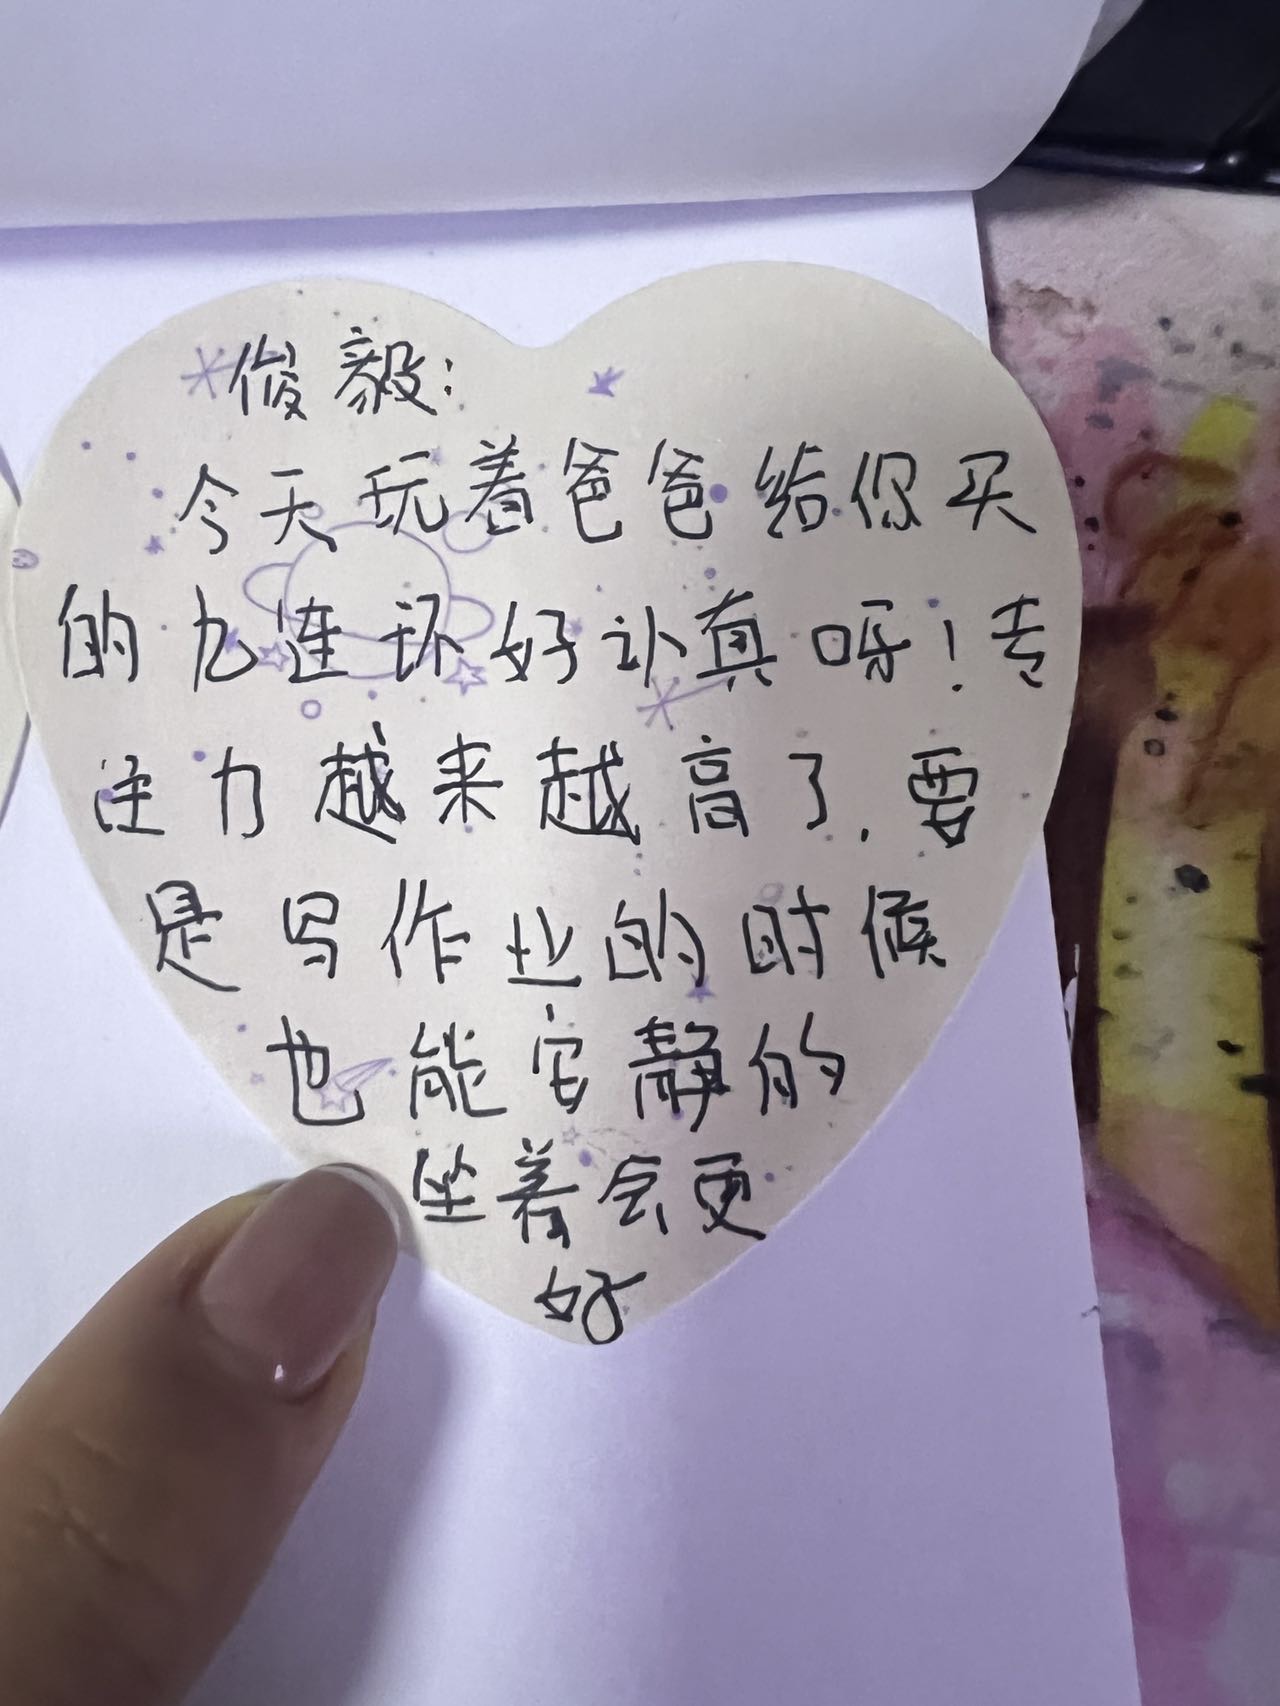 俊毅:
今天玩着爸爸给你买
的九连环好认真呀!专
注力越来越高了,要
是写作业的时候
也能安静的
坐着会更
好